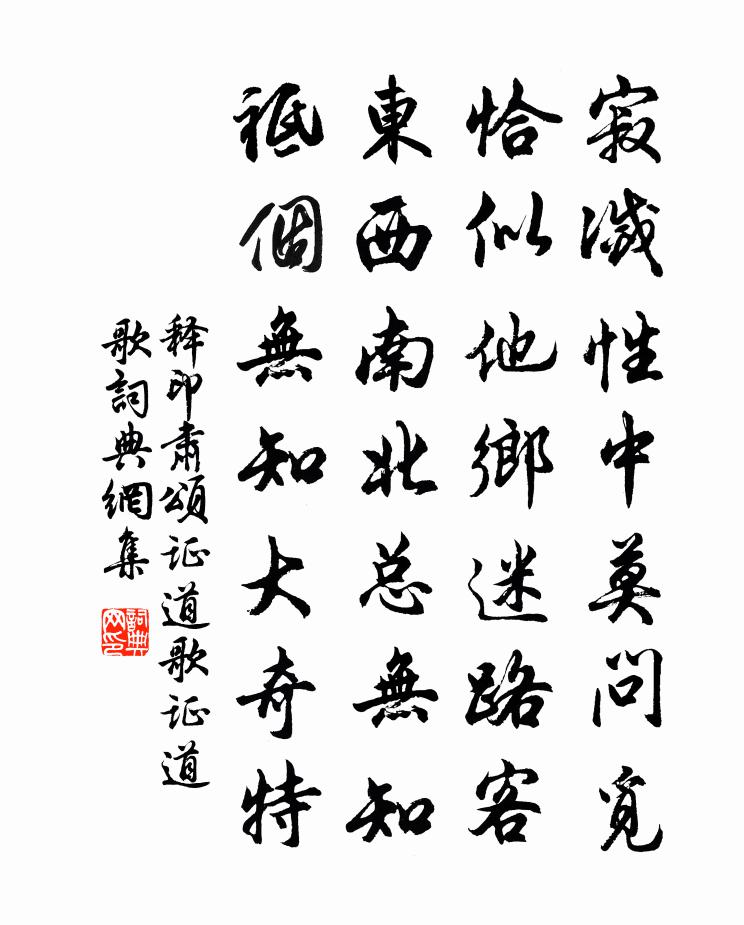 寂滅性中莫問覓
恰似他鄉迷路客
東西南北总無知
祗個無知大奇特
释印肃頌证道歌证道
歌詞典網集
詞典網印